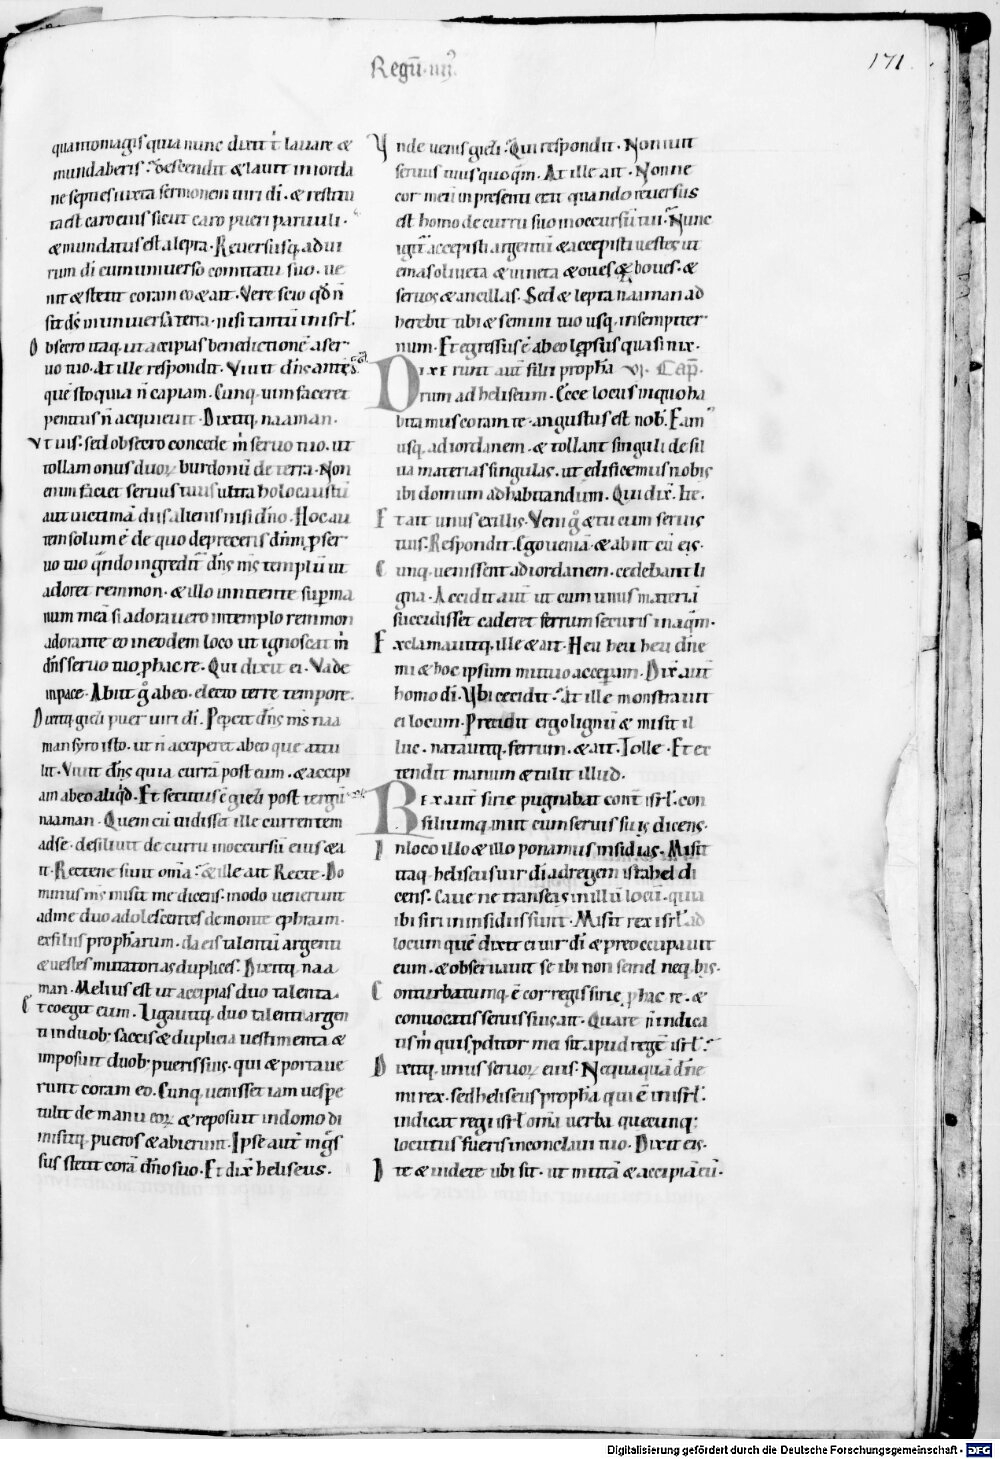 Regū · iiij°.
171
quanto magis quia nunc dixit t̄ lauare &
mundaberis? Descendit & lauit in iorda
ne septies iuxta sermonem uiri dī . & restitu
ta est caro eius sicut caro pueri paruuli .
& mundatus est a lepra . Reuersusq; ad ui
rum dī cum uniuerso comitatu suo . ue
nit & stetit coram eo & ait . Vere scio qd̄ ñ
sit ds̄ in uniuersa terra . nisi tantū in isrl̄ .
Obsecro itaq; ut accipias benedictionē a ser
uo tuo . At ille respondit . Viuit dn̄s ante
quē sto quia ñ capiam . Cunq; uim faceret
penitus ñ acquieuit . Dixitq; naaman .
Vt uis . sed obsecro concede m̄ seruo tuo . ut
tollam onus duoꝝ burdonū de terra . Non
enim faciet seruus tuus ultra holocaustū
aut uictimā diis alienis nisi dn̄o . Hoc au
tem solum ē de quo depreceris dn̄m ꝑ ser
uo tuo qn̄do ingredit̄ dn̄s ms̄ templū ut
adoret remmon . & illo innitente sup ma
num meā si adorauero in templo remmon
adorante eo in eodem loco ut ignoscat m̄
dn̄s seruo tuo ꝓ hac re . Qui dixit ei . Vade
in pace . Abiit g̊ ab eo . electo terre tempore .
Dixitq; giezi puer uiri dī . Pepercit dn̄s ms̄ naa
man syro isto . ut ñ acciperet ab eo que attu
lit . Viuit dn̄s quia currā post eum . & accipi
am ab eo aliqd̄ . Et secutus ē giezi post tergū
naaman . Quem cū uidisset ille currentem
ad se . desiliuit de curru in occursū eius & a
it . Rectene sunt omā? & ille ait Recte . Do
minus ms̄ misit me dicens . modo uenerunt
ad me duo adolescentes de monte ephraim .
ex filiis propharum . da eis talentū argenti
& uestes mutatorias duplices . Dixitq; naa
man . Melius est ut accipias duo talenta .
Et coegit eum . Ligauitq; duo talenti argen
ti in duob; saccis & duplicia uestimenta &
imposuit duob; pueris suis . qui & portaue
runt coram eo . Cunq; uenisset iam uespe
tulit de manu eoꝝ & reposuit in domo di
misitq; pueros & abierunt . Ipse aut̄ ing̃s
sus stetit corā dn̄o suo . Et dix̄ heliseus .
Vnde uenis giezi? Qui respondit . Non iuit
seruus tuus quoq̄m . At ille ait . Nonne
cor meū in presenti erit quando reuersus
est homo de curru suo in occursū tui . Nunc
igit̄ accepisti argentū & accepisti uestes ut
emas oliueta & uineta & oues & boues . &
seruos & ancillas . Sed & lepra naaman ad
herebit tibi & semini tuo usq; in sempiter
num . Et egressus ē ab eo lep̄sus quasi nix .
DIXErunt aut̄ filii propha VI . Cap̄ .
rum ad heliseum . Ecce locus in quo ha
bitamus coram te . angustus est nob̄ . Eam
usq; ad iordanem . & tollant singuli de sil
ua materias singulas . ut edificemus nobis
ibi domum ad habitandum . Qui dix̄ . Ite .
Et ait unus ex illis . Veni g̊ & tu cum seruis
tuis . Respondit . Ego ueniā . & abiit cū eis .
Cunq; uenissent ad iordanem . cedebant li
gna . Accidit aut̄ ut cum unus materiā
succidisset caderet ferrum securis in aq̄m .
Exclamauitq; ille & ait . Heu heu heu dn̄e
mi & hoc ipsum mutuo acceperam . Dix̄ aut̄
homo dī . Vbi cecidit? At ille monstrauit
ei locum . Precidit ergo lignū & misit il
luc . natauitq; ferrum . & ait . Tolle . Et ex
tendit manum & tulit illud .
REX aut̄ sirie pugnabat cont̄ isrl̄ . con
siliumq; iniit cum seruis suis dicens .
In loco illo & illo ponamus insidias . Misit
itaq; heliseus uir dī ad regem israhel di
cens . Caue ne transeas in illū locū . quia
ibi siri in insidiis sunt . Misit rex isrl̄ ad
locum quē dixit ei uir dī & preoccupauit
eum . & obseruauit se ibi non semel neq; bis .
Conturbatumq; ē cor regis sirie ꝓ hac re . &
conuocatis seruis suis ait . Quare ñ indica
tis m̄ quis ꝓditor mei sit apud regē isrl̄ ?
Dixitq; unus seruoꝝ eius . Nequaquā dn̄e
mi rex . sed heliseus propha qui ē in isrl̄ .
indicat regi isrl̄ omā uerba quecunq;
locutus fueris in conclaui tuo . Dixit eis .
Ite & uidete ubi sit . ut mittā & accipiā eū .
Digitalisierung gefördert durch die Deutsche Forschungsgemeinschaft - DFG